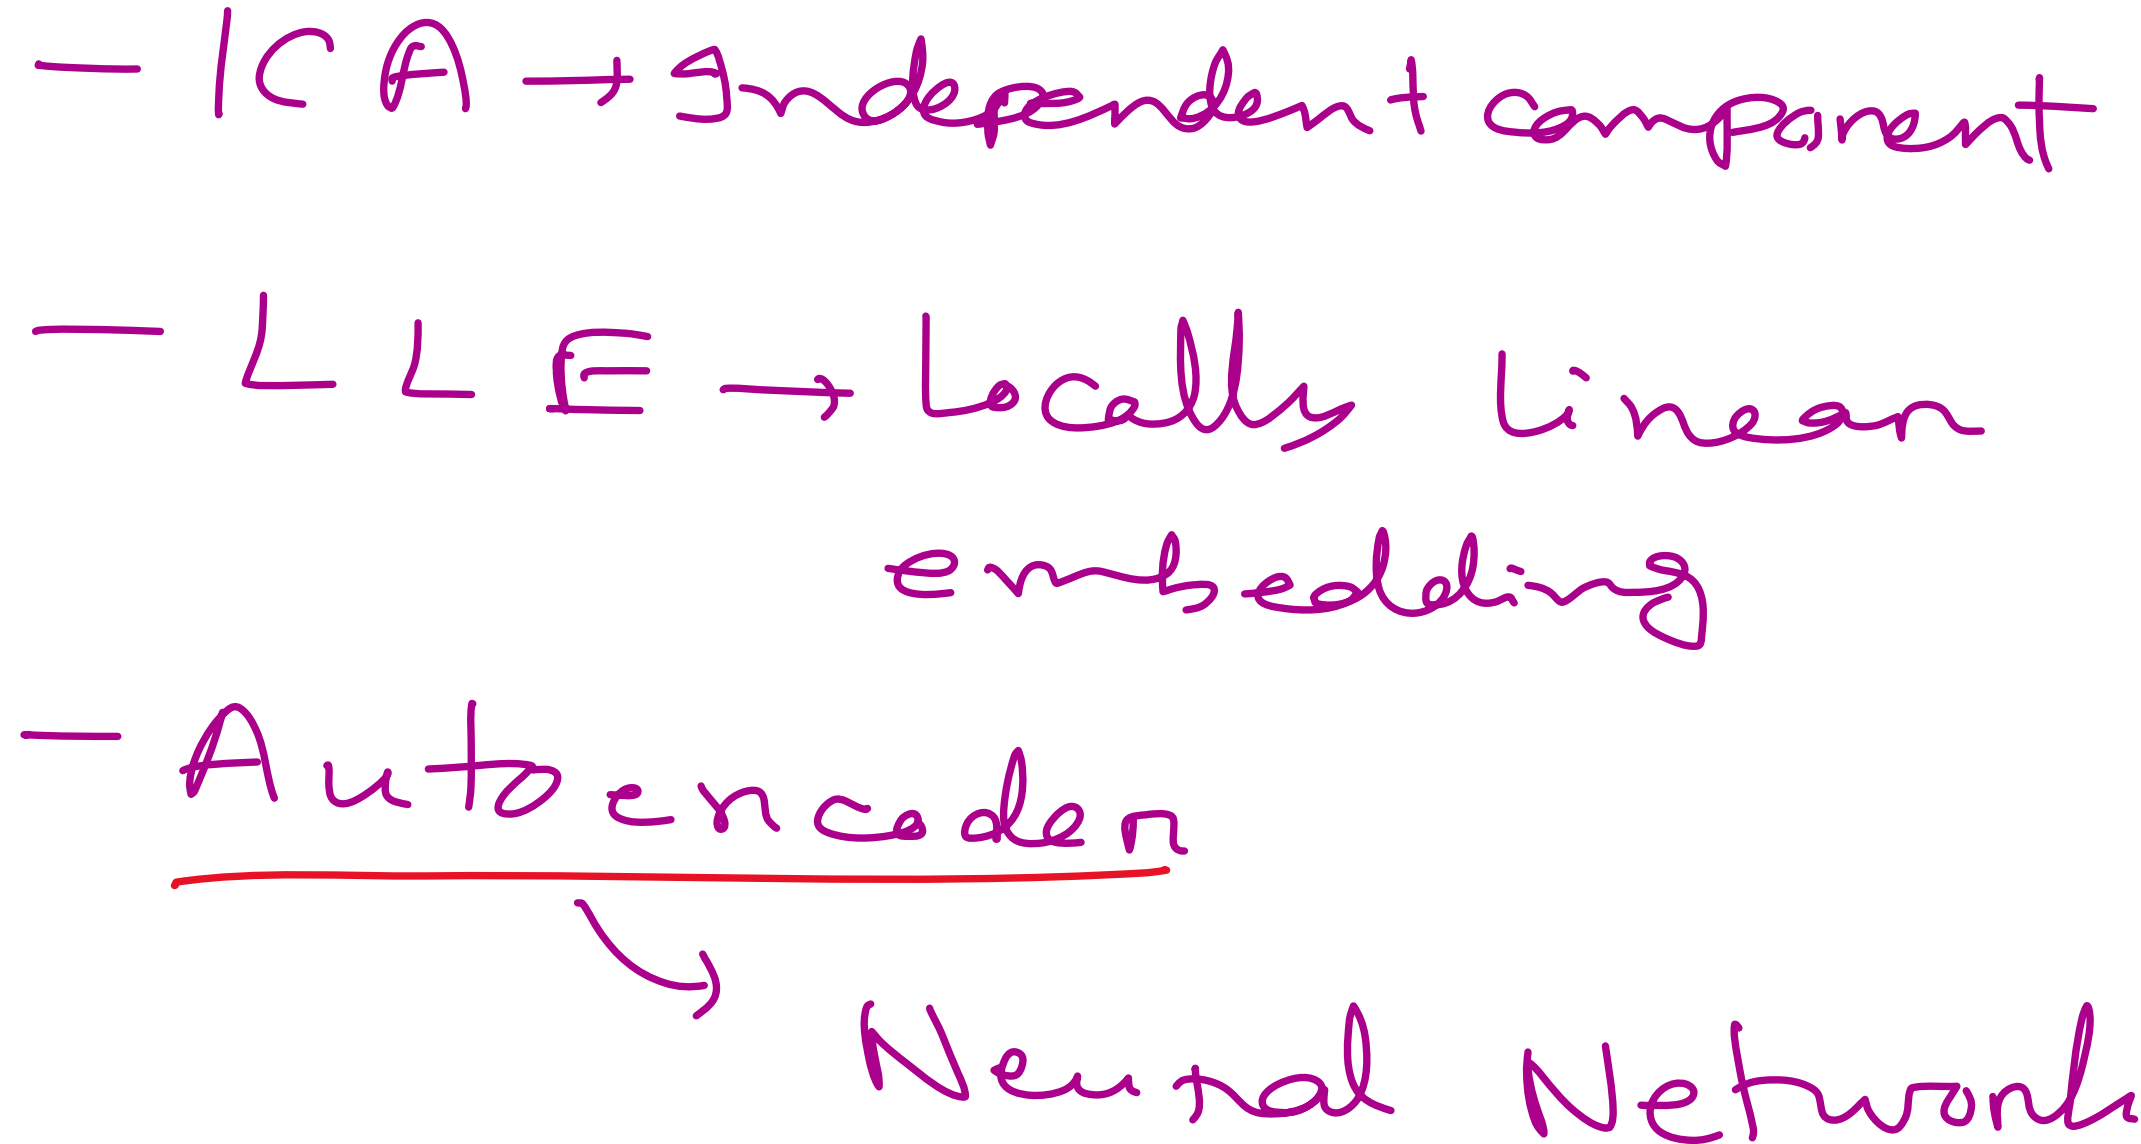 - ICA → Independent component
- LLE → Locally linear
embedding
- Autoencoder
→ Neural Network